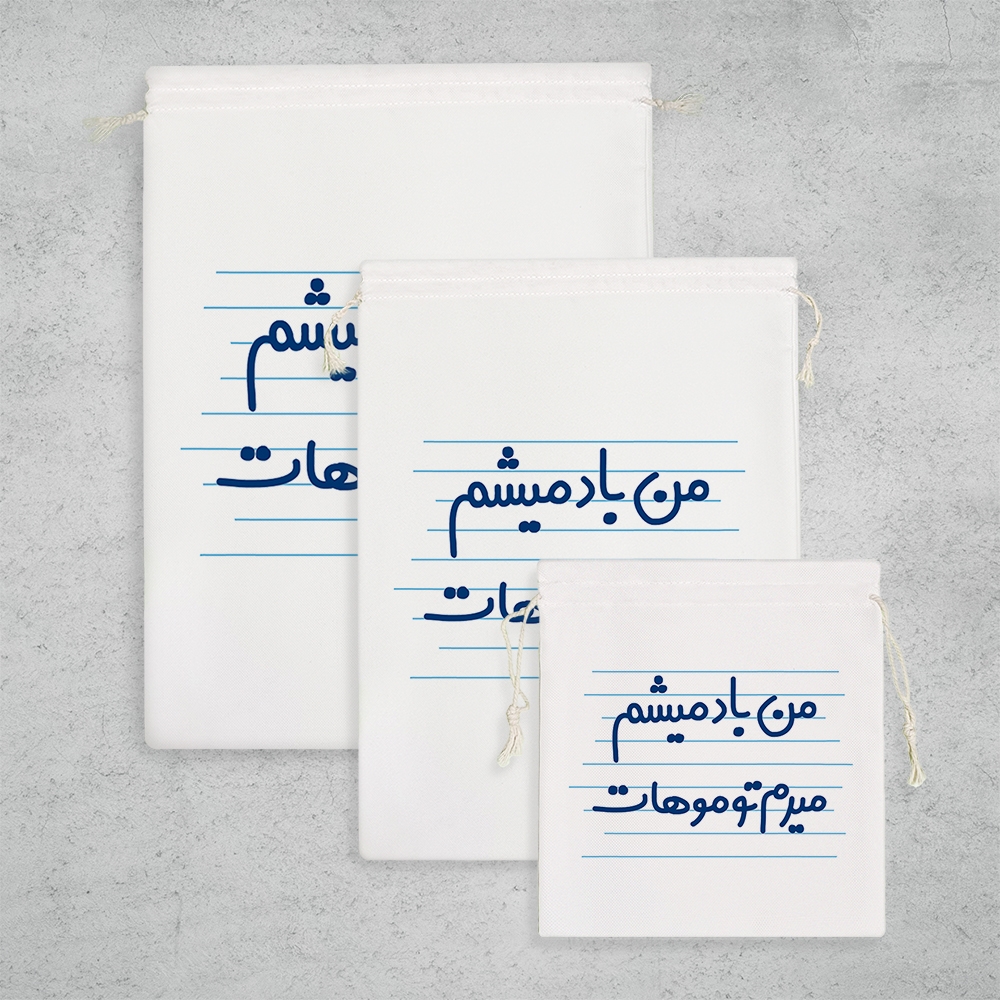 میشم
هات
من باد میشم
هات
من باد میشم
میرم تو موهات